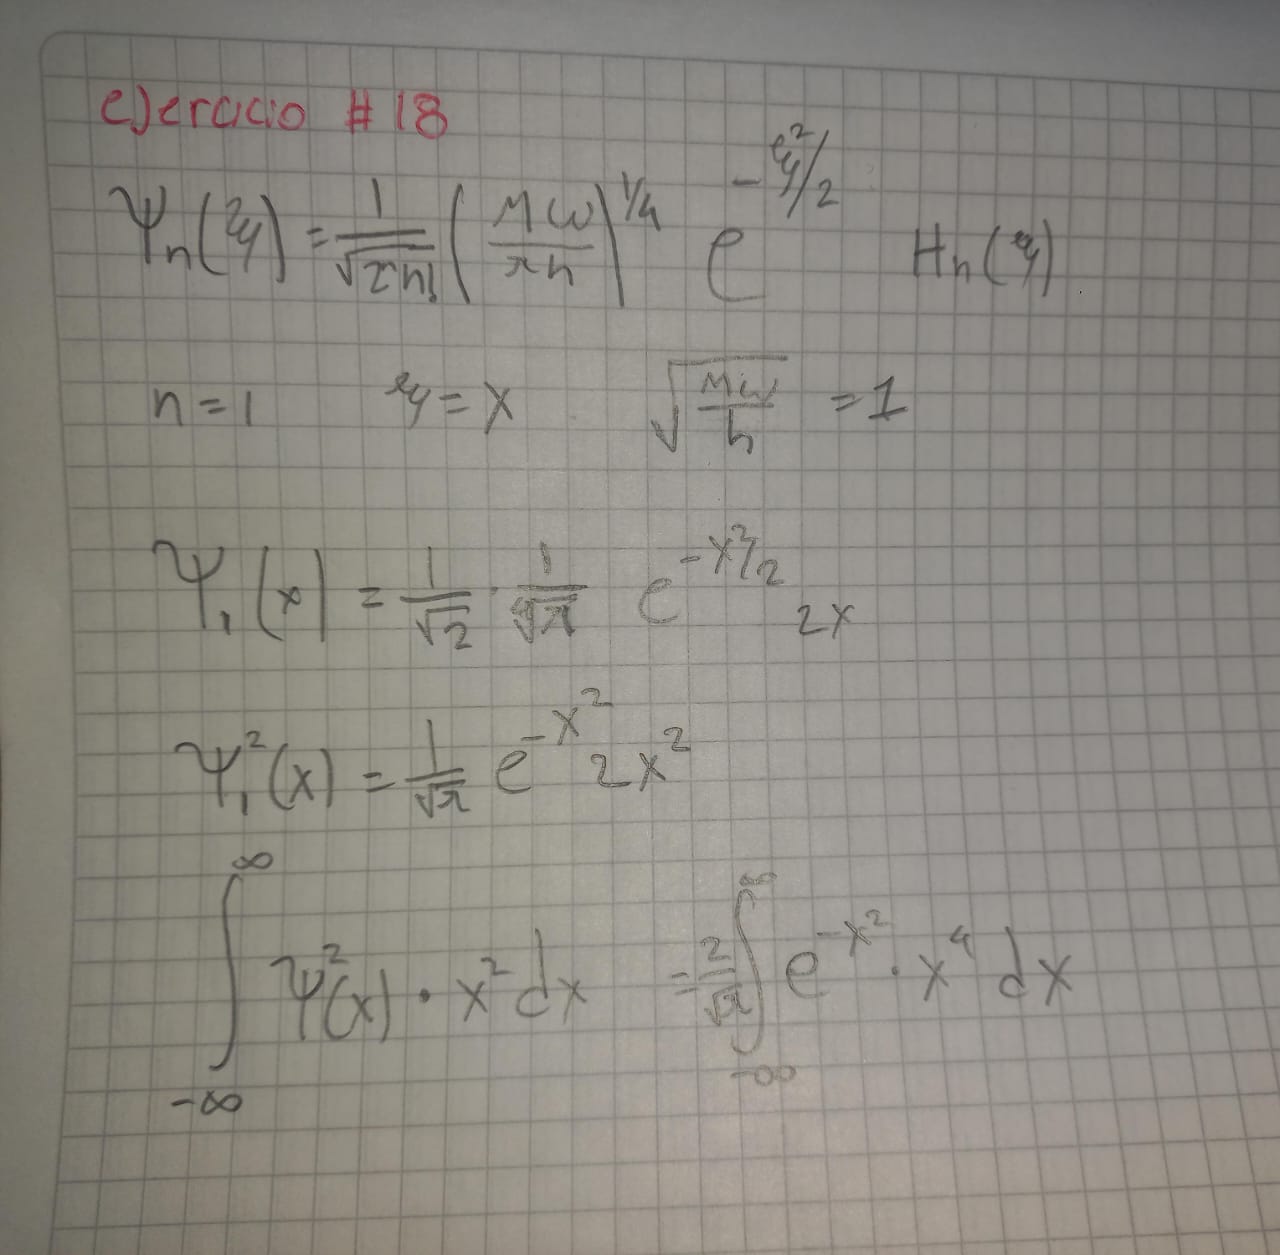 ejercicio #18
Ψn(ξ) = 1/√(2ⁿn!) (Mω/πħ)^1/4 e^-ξ²/2 Hn(ξ)
n=1 ξ=x √(Mω/ħ) =1
Ψ₁(x) = 1/√2 · 1/∜π e^-x²/2 2x
Ψ₁²(x) = 1/√π e^-x² 2x²
∫_-∞^∞ Ψ²(x) · x² dx = 2/√π ∫_-∞^∞ e^-x² · x⁴ dx